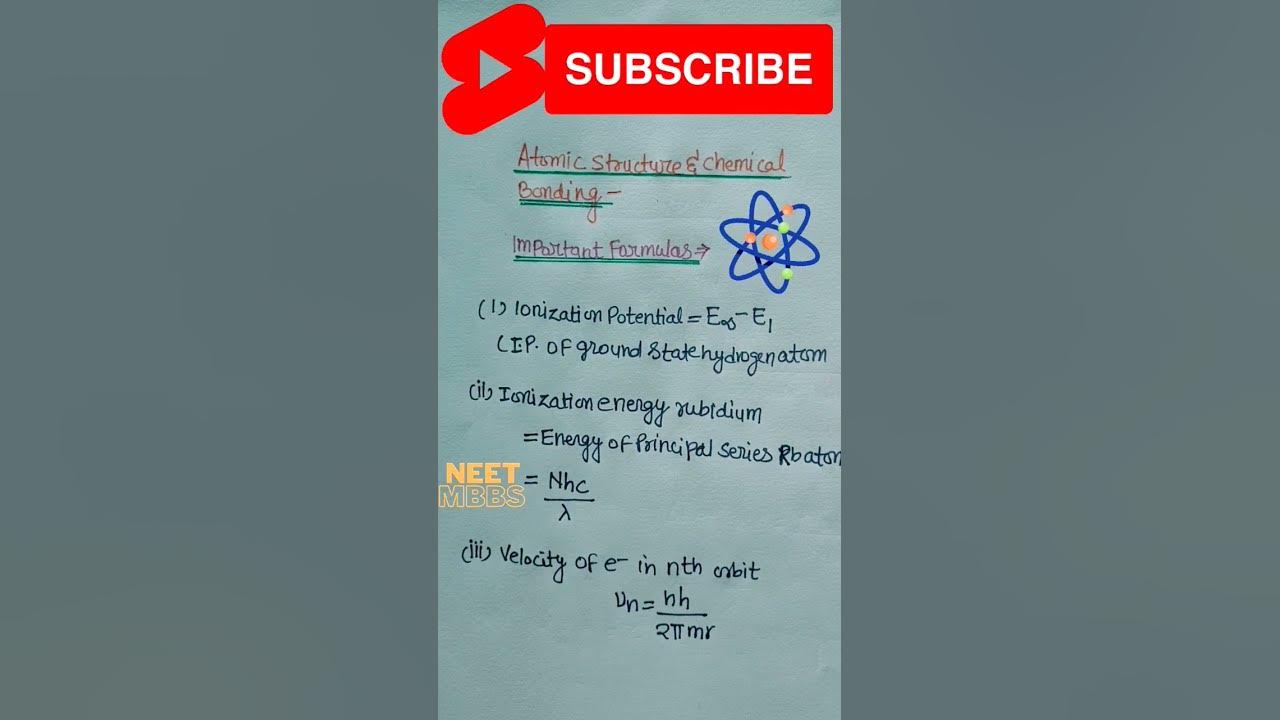 SUBSCRIBE
Atomic Structure & chemical
Bonding -
Important Formulas ⇒
(i) Ionization Potential = E∞ - E₁
(I.P. of ground state hydrogen atom
(ii) Ionization energy rubidium
= Energy of Principal series Rb atom
NEET
MBBS
= Nhc
λ
(iii) Velocity of e⁻ in nth orbit
νn = nh
2πmr